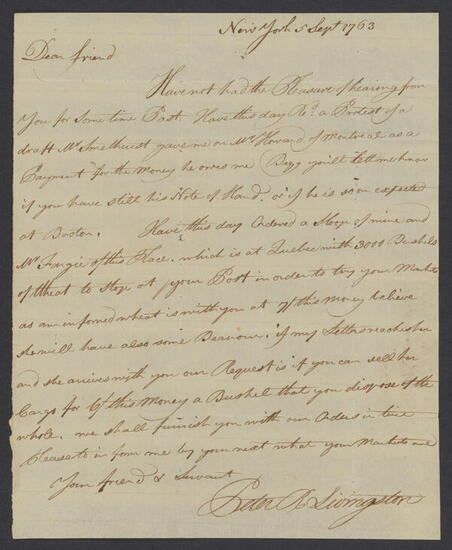 New York 5 Sept 1763
Dear friend
Have not had the Pleasure of hearing from
You for some time Past Have this day Re.d a Protest of a
draft Mr. Smethurst gave me on Mr. Howard of Montreal as a
Payment for the Money he owes me Begg you'll Lett me know
if you have still his Note of Hand. or if he is soon expected
at Boston. Have this day Ordered a Sloop of mine and
Mr. Forgie of this Place. which is at Quebec with 3000 Bushels
of Wheat to Stop at your Port in order to try your Markets
as am informed wheat is with you at 7/ this money believe
she will have also some Beavour. if my Letter reaches her
and she arrives with you our Request is if you can sell her
Cargo for 6/ this Money a Bushel that you dispose of the
whole. we shall furnish you with our Orders in time
Please to inform me by your next what your Markets are
Your friend & Servant
Peter R Livingston